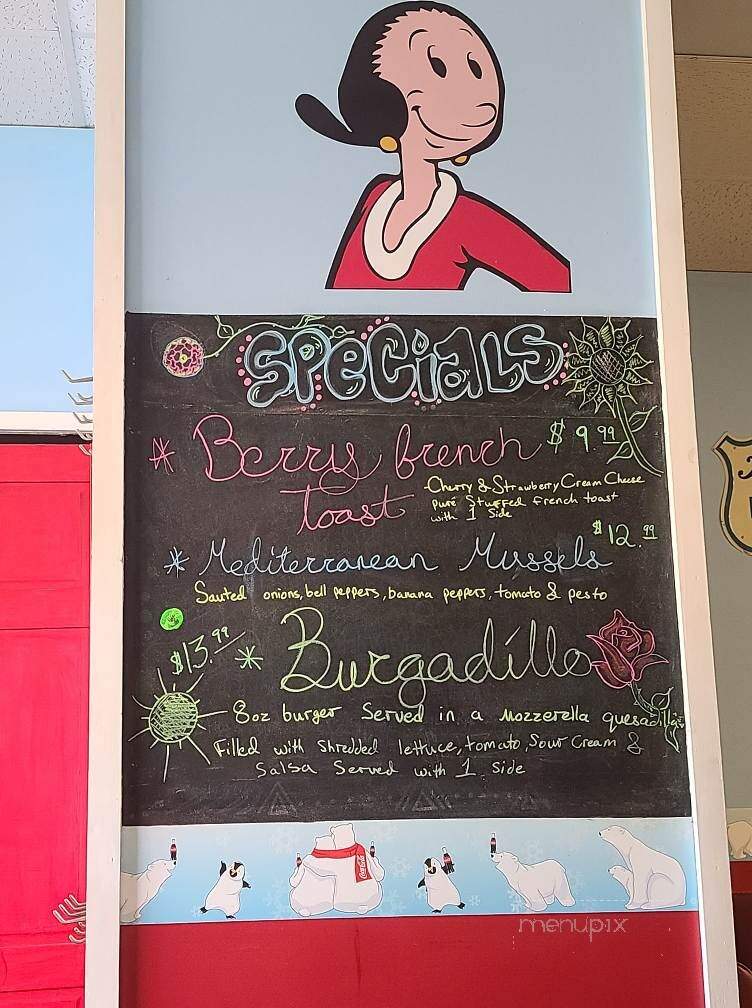 Specials
* Berry french $9.99
toast
Cherry & Strawberry Cream Cheese
puré Stuffed french toast
with 1 Side
$12.99
* Mediterranean Mussels
Sauted onions, bell peppers, banana peppers, tomato & pesto
$13.99 * Burgadillo
8oz burger Served in a Mozzerella quesadilla
filled with shredded lettuce, tomato, Sour Cream &
Salsa Served with 1 Side
Coca-Cola
menupix